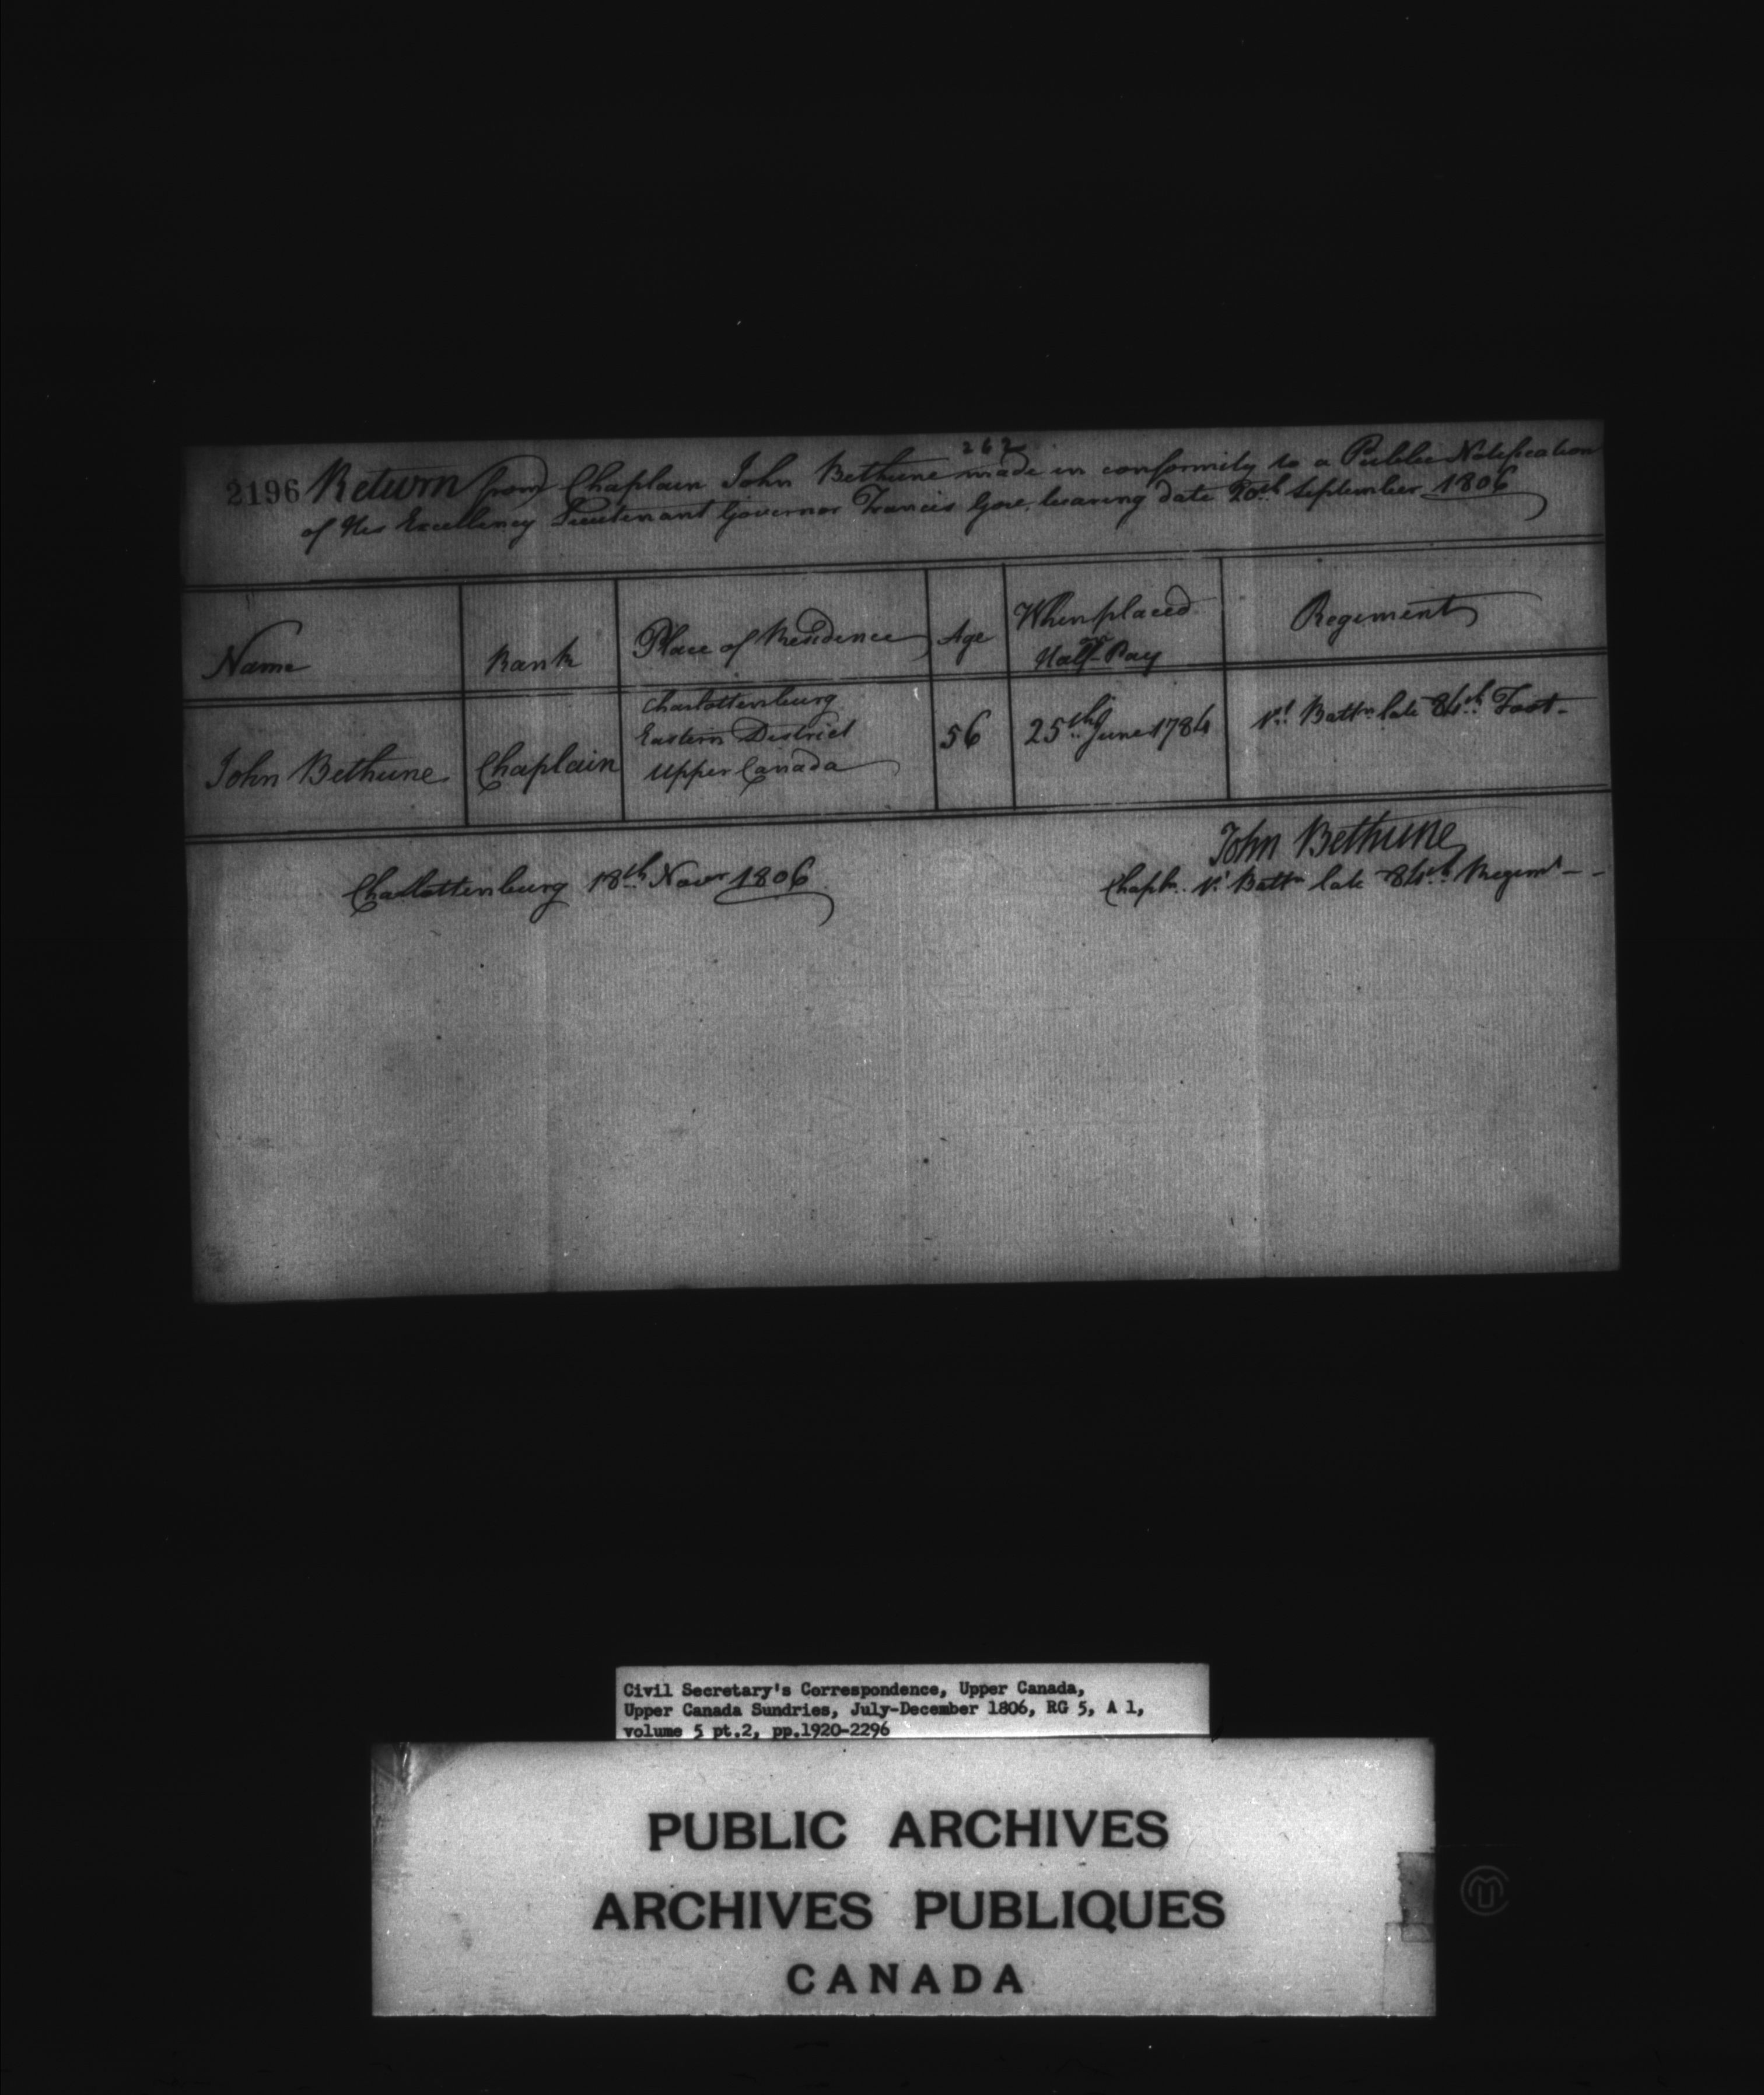 262
2196 Return from Chaplain John Bethune made in conformity to a Public Notification
of His Excellency Lieutenant Governor Francis Gore, bearing date 20th September 1806
Name Rank Place of Residence Age When placed on Half-Pay Regiment
John Bethune Chaplain Charlottenburg Eastern District Upper Canada 56 25th June 1784 1st Battn late 84th Foot-
John Bethune
Charlottenburg 18th Novr 1806 Chapln 1st Battn late 84th Regemt - -
Civil Secretary's Correspondence, Upper Canada,
Upper Canada Sundries, July-December 1806, RG 5, A 1,
volume 5 pt.2, pp.1920-2296
PUBLIC ARCHIVES
ARCHIVES PUBLIQUES
CANADA